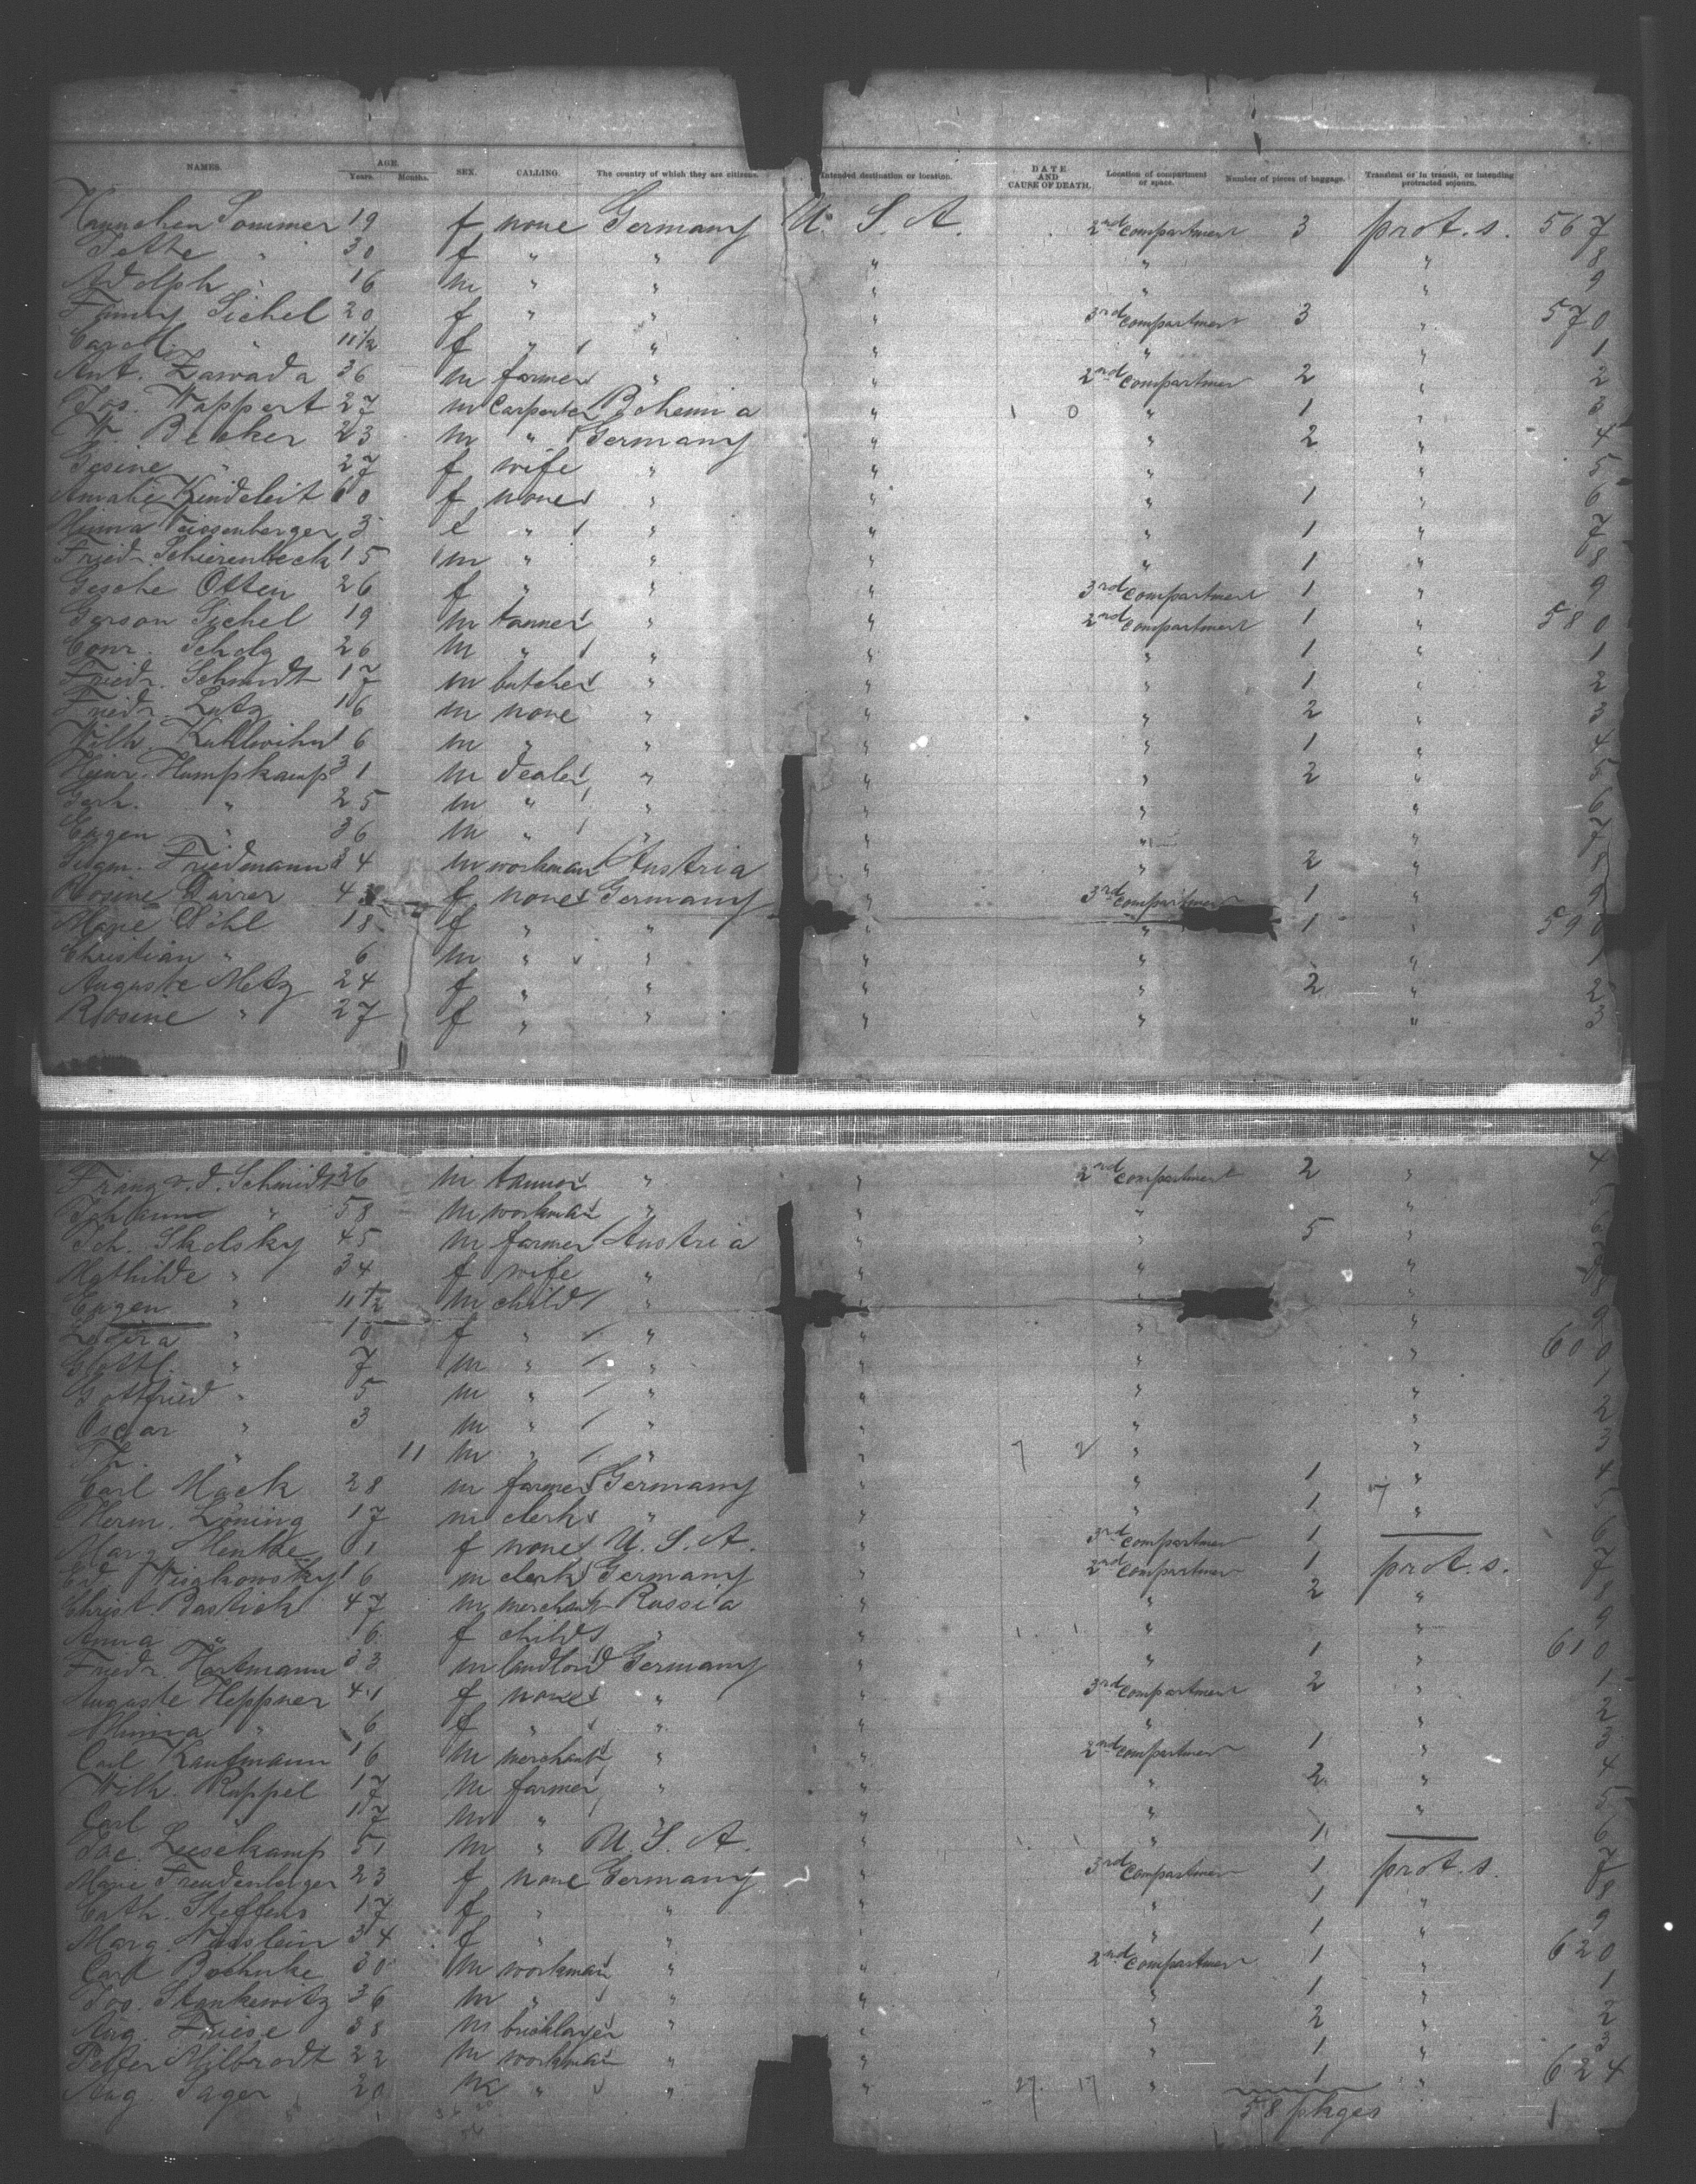 NAMES. AGE. Years. Months. SEX. CALLING. The country of which they are citizens. Intended destination or location. DATE AND CAUSE OF DEATH. Location of compartment or space. Number of pieces of baggage. Transient or in transit, or intending protracted sojourn.
Hannchen Sommer 19 f none Germany U. S. A. 2nd compartment 3 prot. s. 567
Jette " 30 f " " " " " 8
Adolph " 16 m " " " " " 9
Fanny Sichel 20 f " " " 3rd compartment 3 " 570
Carol. " 11 1/2 f " " " " " 1
Ant. Zawada 36 m farmer " " 2nd compartment 2 " 2
Jos. Wappert 27 m carpenter Bohemia " 1 0 " 1 " 3
W. Becker 23 m " Germany " " 2 " 4
Gesine " 27 f wife " " " " 5
Amalie Kindeleit 60 f none " " " 1 " 6
Minna Weissenberger 3 f " " " " 1 " 7
Friedr. Schierenbeck 15 m " " " " 1 " 8
Gesche Otten 26 f " " " 3rd compartment 1 " 9
Gerson Sichel 19 m tanner " " 2nd compartment 1 " 580
Conr. Scholz 26 m " " " " 1 " 1
Friedr. Schmidt 17 m butcher " " " 1 " 2
Friedr. Lutz 16 m none " " " 2 " 3
Wilh. 16 m " " " " 1 " 4
Heinr. Humpkamp 31 m dealer " " " 2 " 5
Gerh. " 25 m " " " " " 6
Eugen " 36 m " " " " " 7
Friedmann 34 m workman Austria " " 2 " 8
Rosine 43 f none Germany " 3rd compartment 1 " 9
Marie Pöhl 18 f " " " " 1 590
Christian " 6 m " " " " " 1
Auguste Metz 24 f " " " " 2 " 2
Rosine " 27 f " " " " " 3
Franz v. d. Schmidt 36 m tanner " " 2nd compartment 2 " 4
Johann " 58 m workman " " " " 5
Joh. Skolsky 45 m farmer Austria " " 5 " 6
Mathilde " 34 f wife " " " "
Eugen " 11 1/2 m child " " " 8
" 10 f " " " " " 9
Gottl. " 7 m " " " " " 600
Gottfried " 5 m " " " " " 1
Oscar " 3 m " " " " " 2
" 11 m " " " 7 2 " " 3
Carl Mack 28 m farmer Germany " " 1 " 4
Herm. Löning 17 m clerk " " " 1 " 5
Marg. Henke 61 f none U. S. A. " 3rd compartment 1 — 6
Ed. 16 m clerk Germany " 2nd compartment 1 prot. s. 7
Christ. Bastick 47 m merchant Russia " " 2 " 8
Anna " 6 f child " " " " 9
Friedr. Hartmann 33 m landlord Germany " " 1 " 610
Auguste Heppner 41 f none " " 3rd compartment 2 " 1
Minna " 6 f " " " " " 2
Carl Kaufmann 16 m merchant " " 2nd compartment 1 " 3
Wilh. Rappel 17 m farmer " " " 2 " 4
Carl " 17 m " " " " " 5
Jac. Leesekamp 51 m " U. S. A. " " 1 — 6
Marie Freudenberger 23 f none Germany " 3rd compartment 1 prot. s. 7
Cath. Steffens 17 f " " " " 1 " 8
Marg. Nusslein 34 f " " " " 1 " 9
Carl Boehnke 30 m workman " " 2nd compartment 1 " 620
Jos. Stankewitz 36 m " " " " 1 " 1
Aug. Friese 38 m bricklayer " " " 2 " 2
Peter Milbrodt 22 m workman " " " 1 " 3
Aug. Sager 20 m " " " 27 17 " 1 " 624
58 pkges